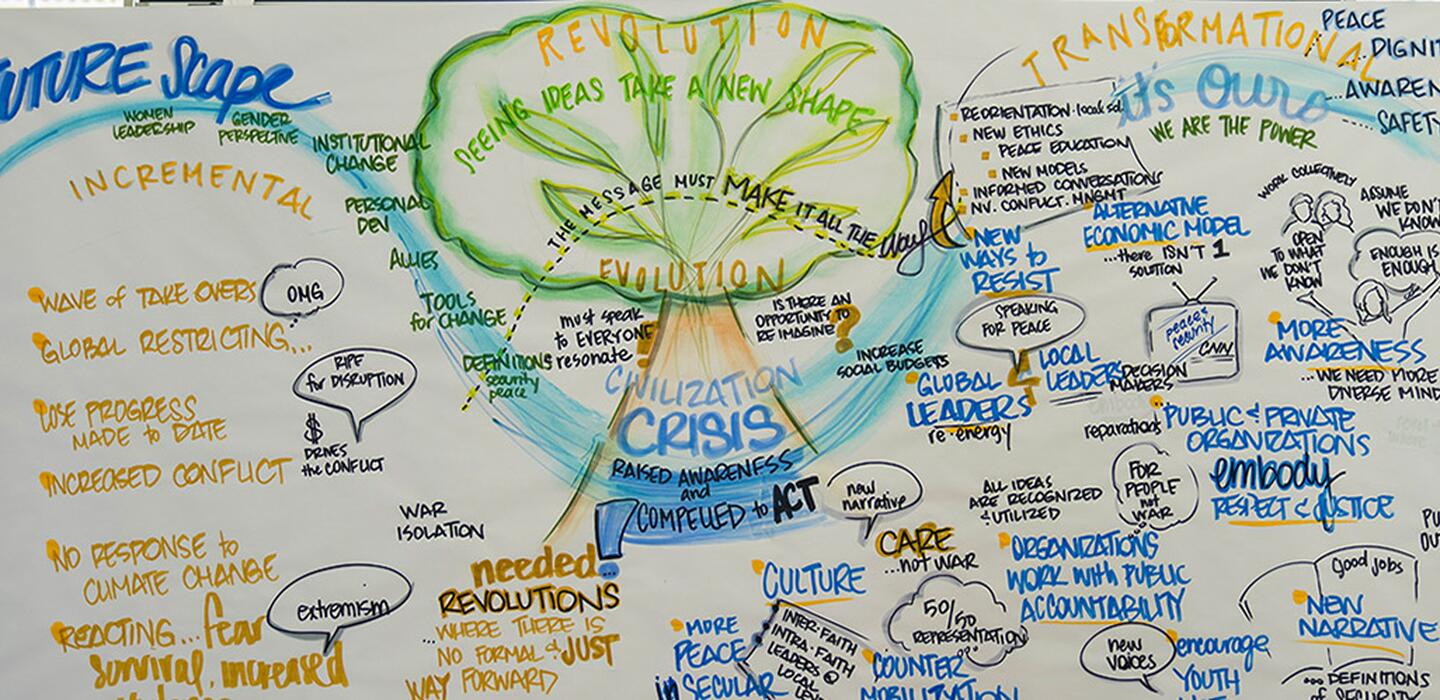 FUTURE Scape
WOMEN
LEADERSHIP
GENDER
PERSPECTIVE
INSTITUTIONAL
CHANGE
INCREMENTAL
PERSONAL
DEV
ALLIES
TOOLS
for CHANGE
DEFINITIONS
security
peace
WAVE of TAKE OVERS
OMG
GLOBAL RESTRICTING...
RIPE
for DISRUPTION
LOSE PROGRESS
MADE to DATE
$
DRIVES
the CONFLICT
INCREASED CONFLICT
WAR
ISOLATION
NO RESPONSE to
CLIMATE CHANGE
extremism
REACTING... fear
survival, increased
REVOLUTION
SEEING IDEAS TAKE A NEW SHAPE
THE MESSAGE MUST MAKE IT ALL THE way
EVOLUTION
must speak
to EVERYONE
resonate
!
IS THERE AN
OPPORTUNITY TO
RE IMAGINE
?
CIVILIZATION
CRISIS
RAISED AWARENESS
and
COMPELLED to ACT
needed...
REVOLUTIONS
...WHERE THERE IS
NO FORMAL & JUST
WAY FORWARD
INCREASE
SOCIAL BUDGETS
new
narrative
CARE
...not WAR
CULTURE
MORE
PEACE
in SECULAR
INTER-FAITH
INTRA-FAITH
LEADERS @
LOCAL
50/50
REPRESENTATION
COUNTER
MOBILIZATION
TRANSFORMATIONAL
PEACE
DIGNIT
...AWAREN
SAFETY
it's Ours
WE ARE THE POWER
REORIENTATION - local sol
NEW ETHICS
PEACE EDUCATION
NEW MODELS
INFORMED CONVERSATIONS
NV. CONFLICT. MNGMT
NEW
WAYS to
RESIST
ALTERNATIVE
ECONOMIC MODEL
...there ISN'T 1
SOLUTION
SPEAKING
FOR PEACE
GLOBAL
LEADERS
re-energy
&
LOCAL
LEADERS
DECISION
MAKERS
peace &
security
CNN
WORK COLLECTIVELY
OPEN
TO WHAT
WE DON'T
KNOW
ASSUME
WE DON'T
KNOW
ENOUGH IS
ENOUGH
MORE
AWARENESS
...WE NEED MORE
DIVERSE MIND
reparations
PUBLIC & PRIVATE
ORGANIZATIONS
embody
RESPECT & JUSTICE
ALL IDEAS
ARE RECOGNIZED
& UTILIZED
FOR
PEOPLE
not
WAR
ORGANIZATIONS
WORK with PUBLIC
ACCOUNTABILITY
new
voices
encourage
YOUTH
Good jobs
NEW
NARRATIVE
... DEFINITIONS